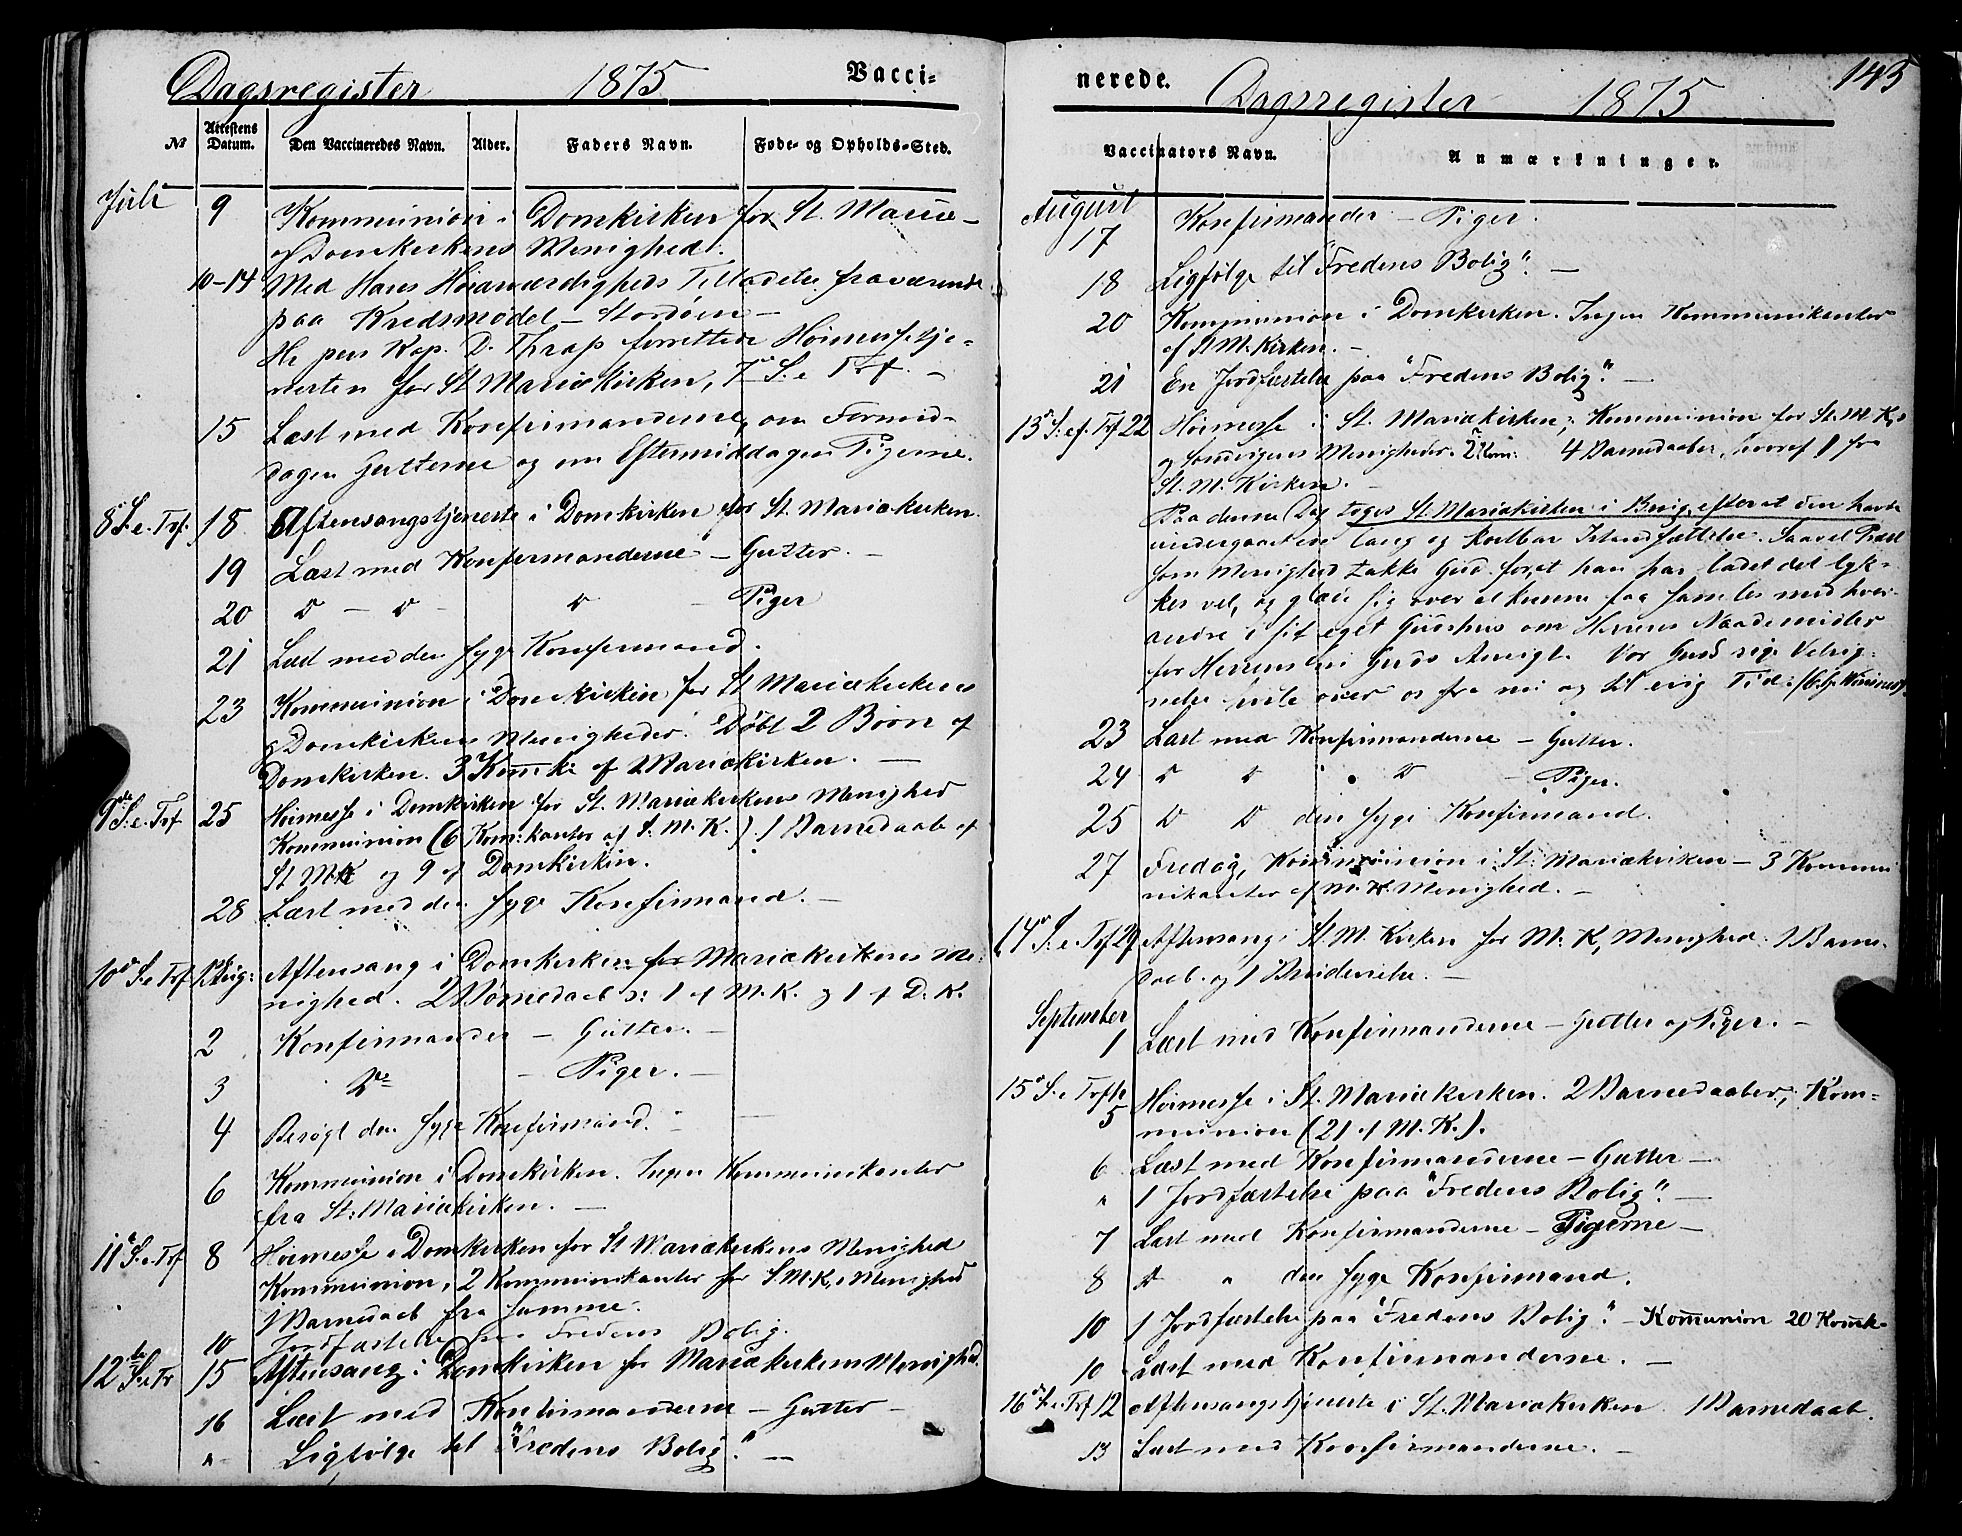 Dagsregister 1875 Vacci-
№ Attestens Datum. Den Vaccineredes Navn. Alder. Faders Navn. Føde- og Opholds-Sted.
Juli 9 Kommunion i Domkirken for St. Mariæ-
og Domkirkens Menighed.
10-14 Med Hans Høiærværdigheds Tilladelse fraværende
paa Kredsmødet - Stordøen -
Hr pers Kap. D. Thrap forrettede Høimessetje-
nesten for St Mariækirken, 7de S. e Trf. -
15 Læst med Konfirmanderne, om Formid-
dagen Gutterne og om Eftermiddagen Pigerne.
8de S. e. Trf. 18 Aftensangstjeneste i Domkirken for St. Mariækirken.
19 Læst med Konfirmanderne - Gutter. -
20 D - D - D - Piger
21 Læst med den syge Konfirmand.
23 Kommunion i Domkirken for St Mariækirkens
og Domkirkens Menigheder. Døbt 2 Børn af
Domkirken. 3 Komke af Mariækirken. -
9de S. e. Trf 25 Høimesse i Domkirken for St. Mariækirkens Menighed
Kommunion (6 Kom:kanter af S. M. K.). 1 Barnedaab af
St MK og 9 af Domkirken.
28 Læst med den syge Konfirmand. -
10de S. e Trf 1 Aug: Aftensang i Domkirken for Mariækirkens Me-
nighed. 2 Barnedaab : 1 af M. K. og 1 af D. K.
2 Konfirmander - Gutter. -
3 Do - Piger. -
4 Besøgt den syge Konfirmand. -
6 Kommunion i Domkirken. Ingen Kommunikanter
fra St. Mariækirken. -
11te S. e Trf 8 Høimesse i Domkirken for St Mariækirkens Menighed
Kommunion, 2 Kommunikanter for S. M. K. Menighed
1 Barnedaab fra samme.
10 Jordfæstelse paa Fredens Bolig.
12te S. e Tr 15 Aftensang i Domkirken for Mariækirkens Menighed.
16 Læst med Konfirmanderne - Gutter -
" Ligfølge til "Fredens Bolig." -
nerede. Dagsregister 1875 145
Vaccinators Navn. Anmærkninger.
August
17 Konfirmander - Piger.
18 Ligfølge til "Fredens Bolig". -
20 Kommunion i Domkirken. Ingen Kommunikanter
af St M. Kirken. -
21 En Jordfæstelse paa "Fredens Bolig". -
13de S. ef. Trf 22 Høimesse i St. Mariækirken; Kommunion for St. M. K.s
og Menigheder. 4 Barnedaaber, hvoraf 1 fra
St. M. Kirken. -
Paa denne Dag toges St. Mariækirken i Brug efterat den havde
undergaaet en lang og kostbar Istandsættelse. Saavel Præst
som Menighed takke Gud for, at han har ladet det lyk-
kes vel, og glæde sig over at kunne faa samles med hver-
andre i sit eget Gudshus om Herrens Naademidler
for Herren Guds Ansigt. Vor Gud sige Velsig-
nelse hvile over os fra nu og til evig Tid.
23 Læst med Konfirmanderne - Gutter.
24 D D D - Piger.
25 D D den syge Konfirmand.
27 Fredag, Kommunion i St. Mariækirken - 3 Kommu
nikanter af M. K. Menighed. -
14de S. e. Trf 29 Aftensang i St. M. Kirken for M. K. Menighed. 1 Barne-
daab og 1 Brudevielse. -
September
1 Læst med Konfirmanderne - Gutter og Piger. -
15de S. e Trf
5 Høimesse i St. Mariækirken. 2 Barnedaaber, Kom-
munion (21 af M. K.).
6 Læst med Konfirmanderne - Gutter -
" 1 Jordfæstelse paa "Fredens Bolig". -
7 Læst med Konfirmanderne - Pigerne -
8 D " den syge Konfirmand.
10 1 Jordfæstelse paa "Fredens Bolig". - Kommunion 20 Komk-
10 Læst med Konfirmanderne. -
16de S. e. Trf 12 Aftensangstjeneste i St. Mariækirken 1 Barnedaab.
13 Læst med Konfirmanderne. -